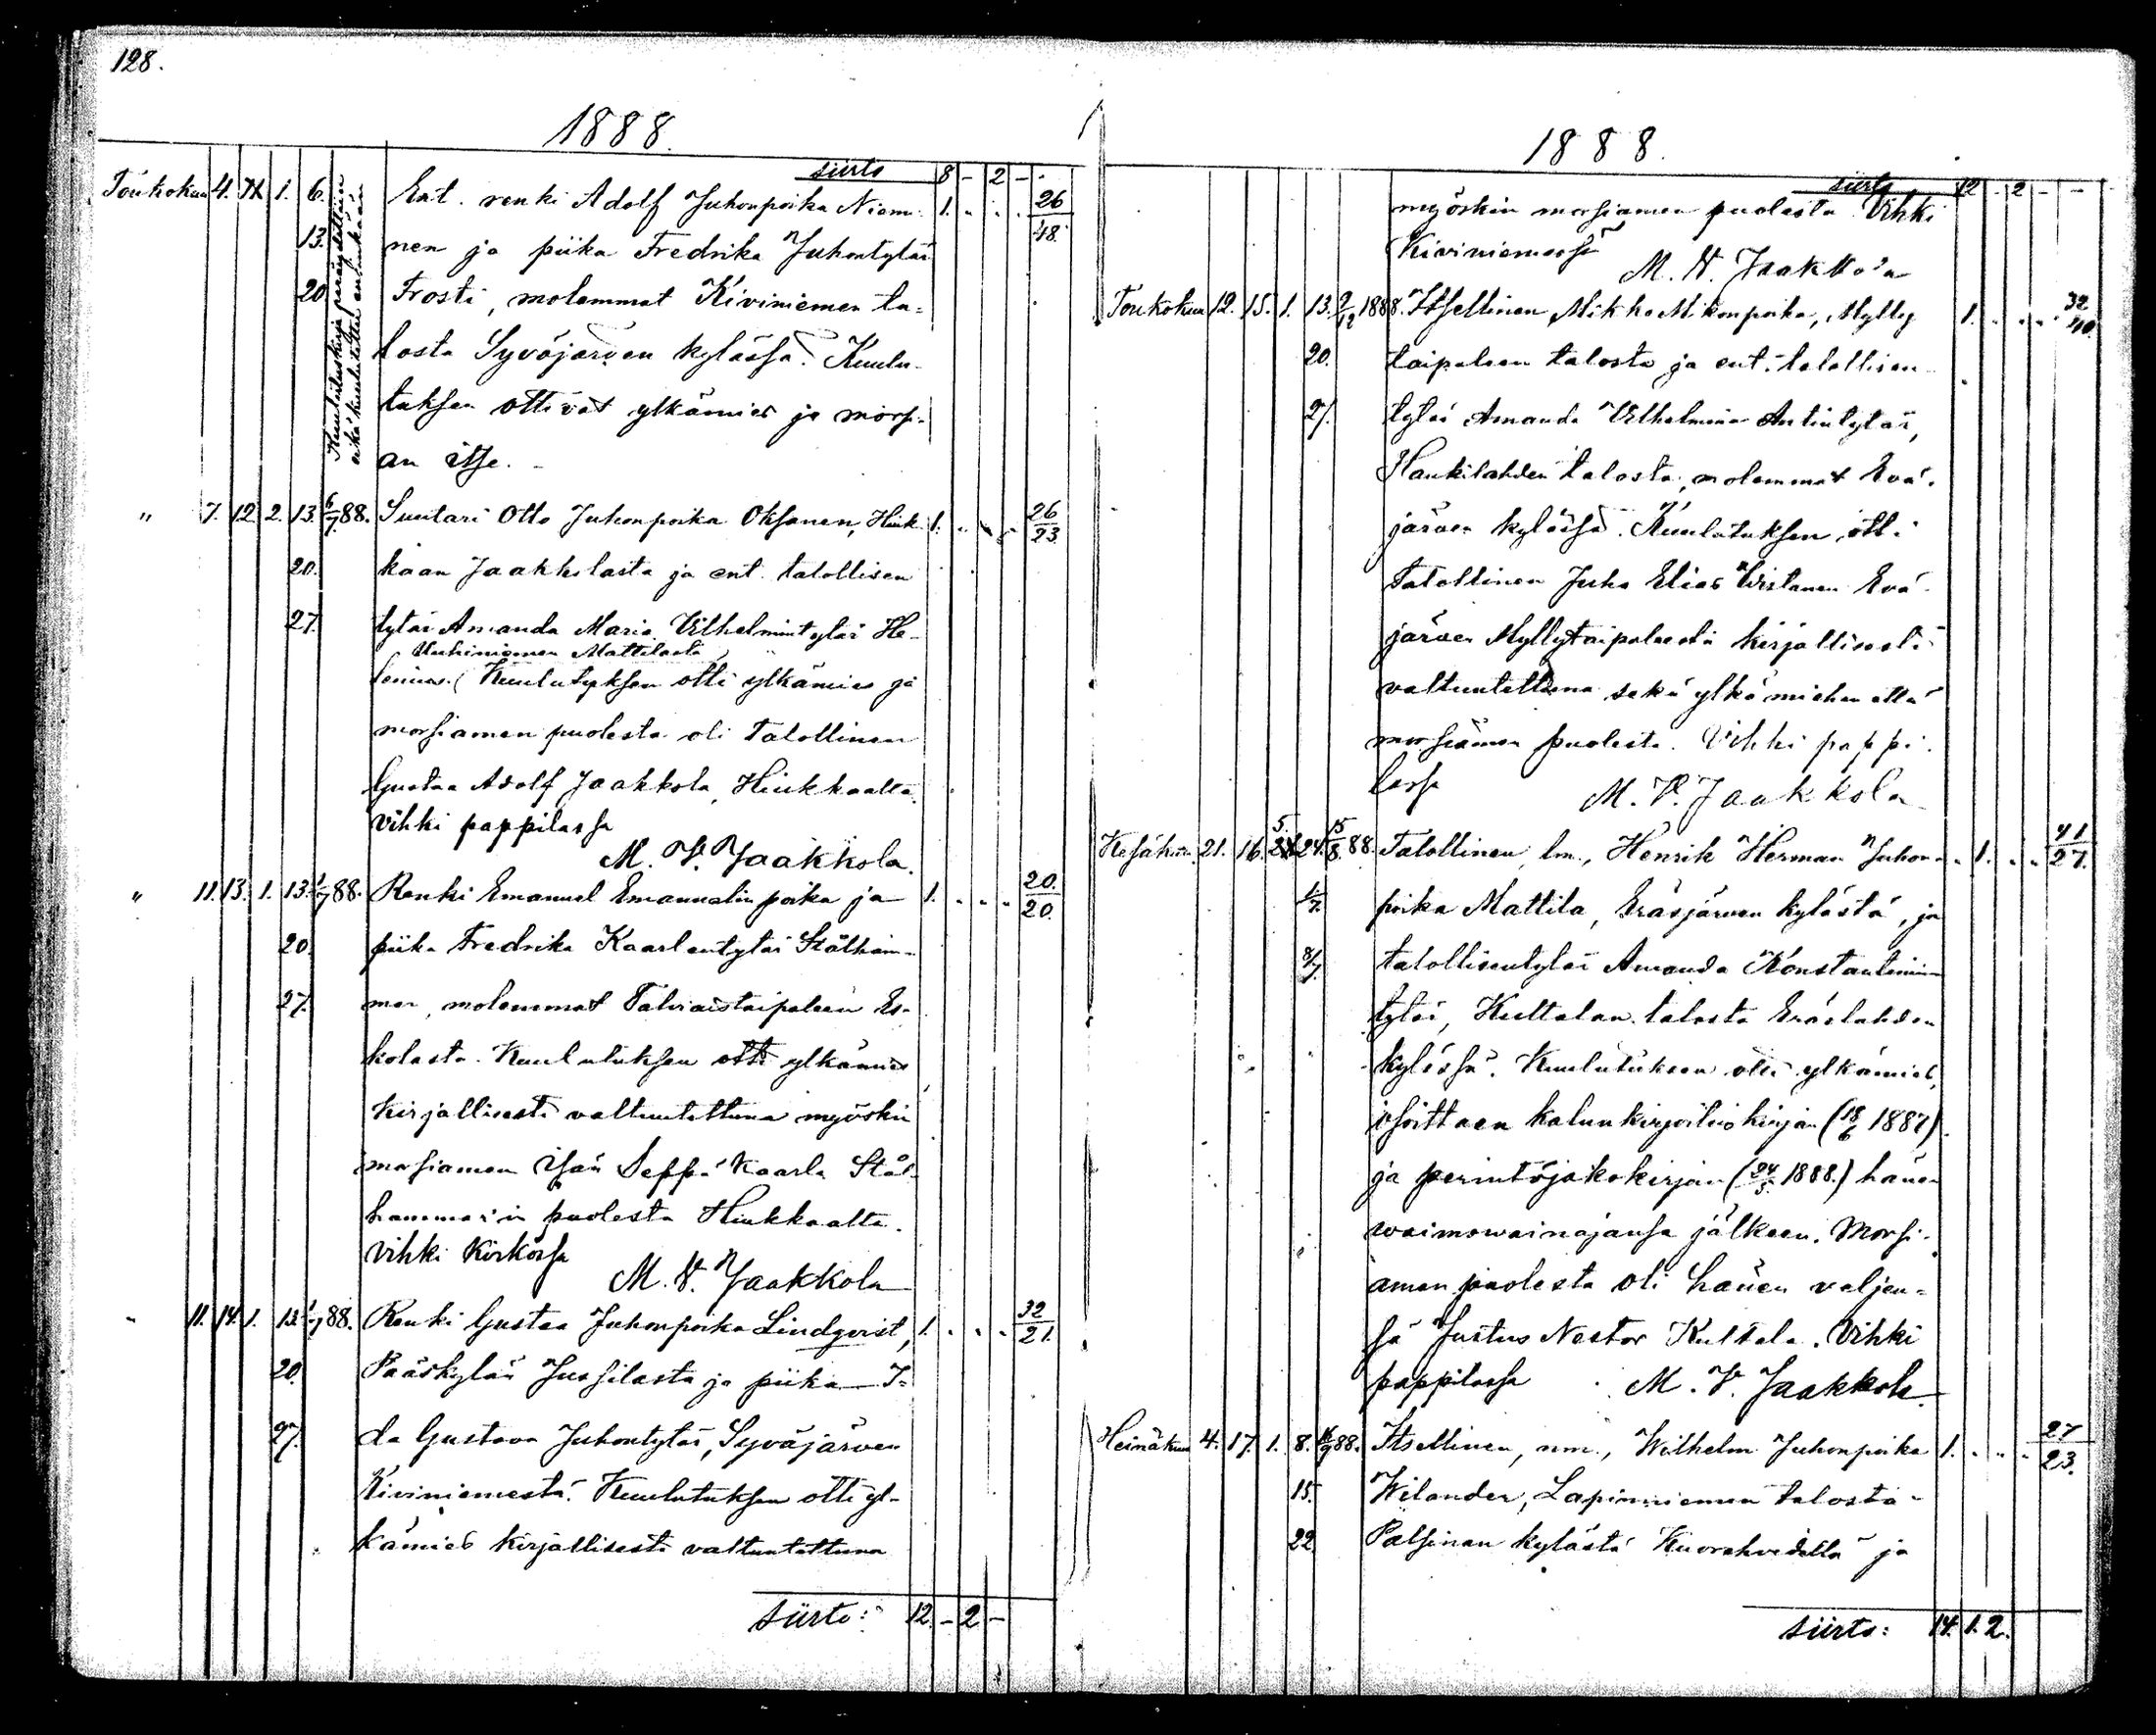 128.
1888.
siirto 8 - 2 - -
Toukokuu 4. 1. 6. Ent. renki Adolf Juhonpoika Niemi- 1. 26/48.
13. nen ja piika Fredrika Juhontytär
20 Frosti, molemmat Kiviniemen ta-
losta Syvöjärven kylässä. Kuulu-
tuksen ottivat ylkämies ja morsi-
an itse.
Kuulutuskirja peräytettiin
eikä kuulutettu enkukaan
" 7. 12 2. 13. 6/7 88. Suutari Otto Juhonpoika Oksanen, Hiuk- 1. 26/23.
20. kaan Jaakkolasta ja ent. talollisen
27. tytär Amanda Maria Vilhelmintytär He-
Uuhiniemen Mattilasta
lenius. Kuulutyksen otti ylkämies ja
morsiamen puolesta oli talollinen
Gustaa Adolf Jaakkola, Hiukkaalta.
Vihki pappilassa
M. V. Jaakkola.
" 11. 13. 1. 13. 1/7 88. Renki Emanuel Emanuelinpoika ja 1. 20./20.
20. piika Fredrika Kaarlentytär Stålham-
27. mar, molemmat Talviaistaipaleen Es-
kolasta. Kuulutuksen otti ylkämies
kirjallisesti valtuutettuna myöskin
morsiamen isän Seppä Kaarlo Stål-
hammar'in puolesta Hiukkaalta.
Vihki Kirkossa
M. V. Jaakkola
" 11. 14. 1. 13. 1/7 88. Renki Gustaa Juhonpoika Lindqvist, 1. 32/21.
20. Pääskylän Jussilasta ja piika I-
27. da Gustava Juhontytär, Syväjärven
Kiviniemestä. Kuulutuksen otti yl-
kämies kirjallisesti valtuutettuna
Siirto: 12. - 2 -
1888.
siirto 12 - 2 - -
myöskin morsiamen puolesta. Vihki
Kiviniemessä
M. V. Jaakkola
Toukokuu 12. 15. 1. 13. 2/12 1888. Itsellinen, Mikko Mikonpoika, Mylly- 1. 32/40.
20. taipaleen talosta ja ent. talollisen
27. tytär Amanda Vilhelmina Antintytär,
Haukilahden talosta, molemmat Evä-
järven kylässä. Kuulutuksen otti
Talollinen Juho Elias Virtanen Evä-
järven Myllytaipaleesta kirjallisesti
valtuutettuna sekä ylkämiehen että
morsiamen puolesta. Vihki pappi-
lassa
M. V. Jaakkola
Kesäkuu 21. 16. 24. 15/8. 88. Talollinen, lm., Henrik Herman Juhon- 1. 41/27.
1/7. poika Mattila, Eräsjärven kylästä, ja
8/7. talollisentytär Amanda Konstantinin-
tytär, Kultalan talosta Eräslahden
kylässä. Kuulutuksen otti ylkämies,
osoittaen kalunkirjoituskirjan (18/6 1887)
ja perintöjakokirjan (24/5. 1888.) hänen
waimowainajansa jälkeen. Morsi-
amen puolesta oli hänen veljen-
sä Justus Nestor Kultala. Vihki
pappilassa M. V. Jaakkola.
Heinäkuu 4. 17. 1. 8. 88. Itsellinen, nm., Wilhelm Juhonpoika 1. 27/23.
15. Wilander, Lapinniemen talosta
22 Palsinan kylästä Kuorehvedellä ja
Siirto: 14. 1. 2.